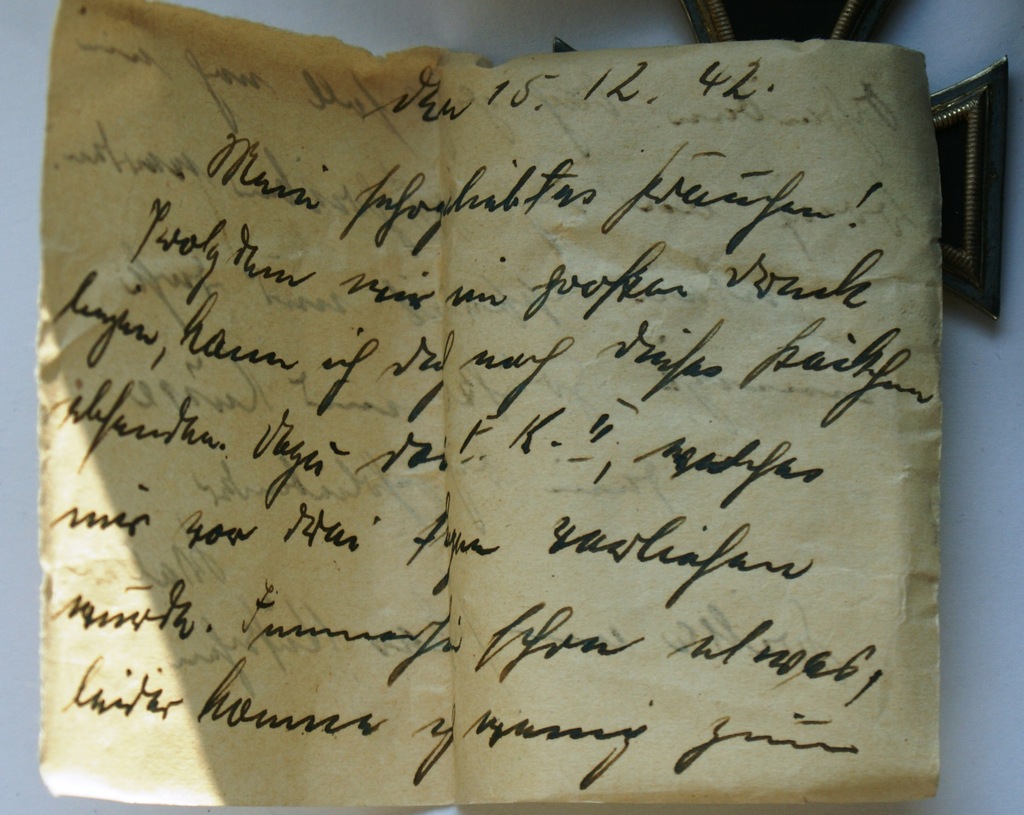 den 15. 12. 42.
Mein sehrgeliebtes Frauchen!
Trotzdem wir im großen Druck
liegen, kann ich dir noch dieses Päckchen
absenden. Dazu das E. K. II, welches
mir vor drei Tagen verliehen
wurde. Immerhin schon etwas,
leider komme ich wenig zum